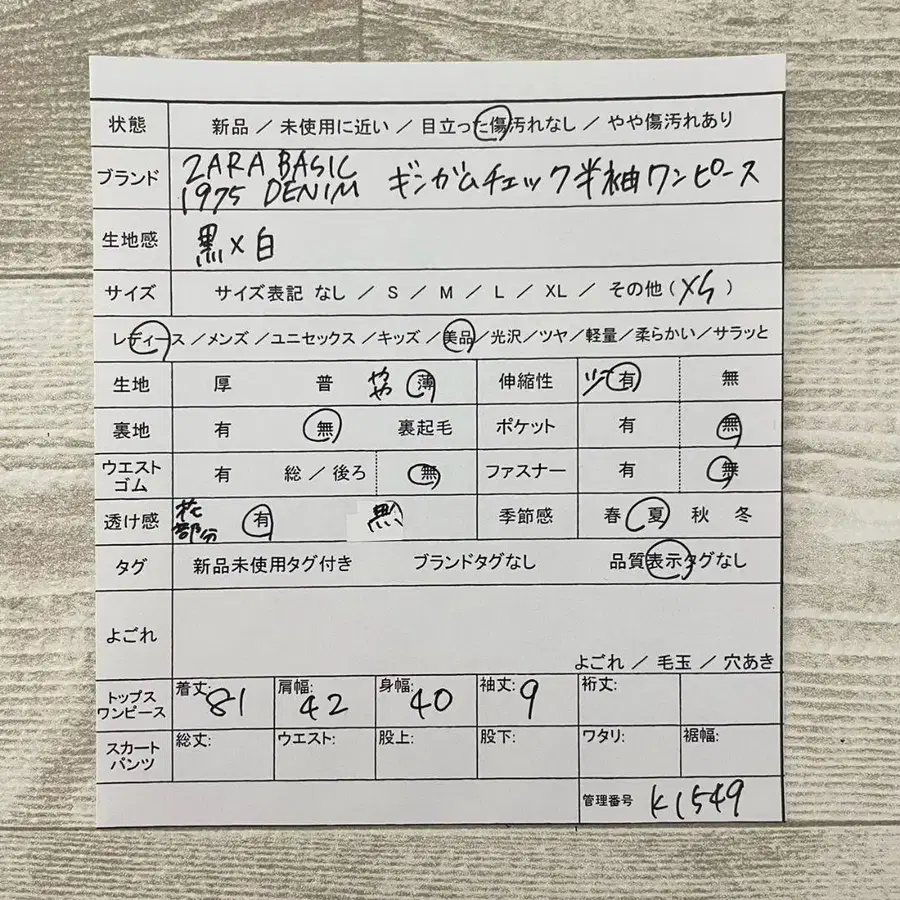 状態 新品 / 未使用に近い / 目立った傷汚れなし / やや傷汚れあり
ブランド ZARA BASIC
1975 DENIM ギンガムチェック半袖ワンピース
生地感 黒×白
サイズ サイズ表記 なし / S / M / L / XL / その他 ( XS )
レディース / メンズ / ユニセックス / キッズ / 美品 / 光沢 / ツヤ / 軽量 / 柔らかい / サラッと
生地 厚 普 やや 薄 伸縮性 有 無
裏地 有 無 裏起毛 ポケット 有 無
ウエストゴム 有 総 / 後ろ 無 ファスナー 有 無
透け感 部分 有 季節感 春 夏 秋 冬
タグ 新品未使用タグ付き ブランドタグなし 品質表示タグなし
よごれ
よごれ / 毛玉 / 穴あき
トップス ワンピース 着丈: 81 肩幅: 42 身幅: 40 袖丈: 9 裄丈:
スカート パンツ 総丈: ウエスト: 股上: 股下: ワタリ: 裾幅:
管理番号 K1549